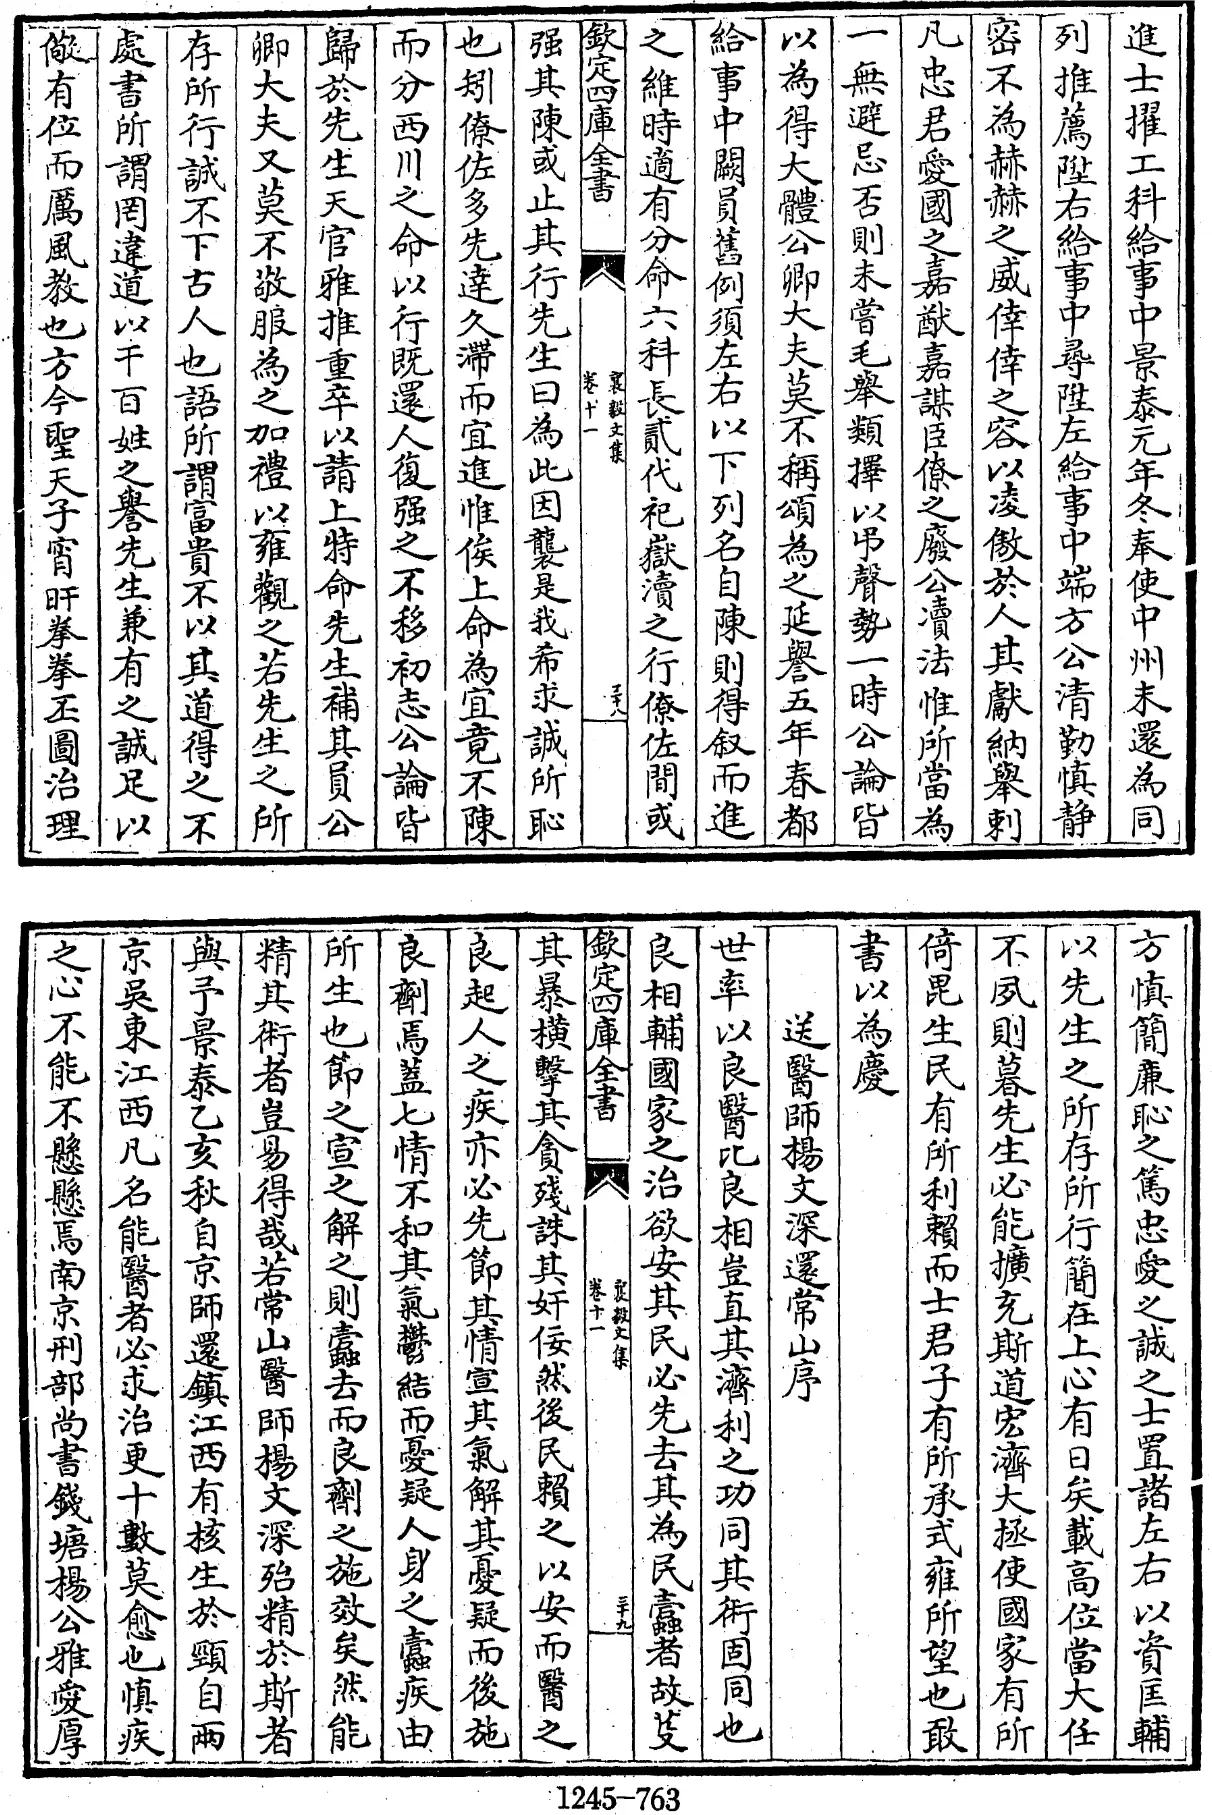 進士擢工科給事中景泰元年冬奉使中州未還為同
列推薦陞右給事中尋陞左給事中端方公清勤慎靜
密不為赫赫之威倖倖之容以凌傲於人其獻納舉刺
凡忠君愛國之嘉猷嘉謀臣僚之廢公瀆法惟所當為
一無避忌否則未嘗毛舉類擇以吊聲勢一時公論皆
以為得大體公卿大夫莫不稱頌為之延譽五年春都
給事中闕員舊例須左右以下列名自陳則得叙而進
之維時適有分命六科長貳代祀嶽瀆之行僚佐間或
欽定四庫全書
襄毅文集
卷十一
三十八
强其陳或止其行先生曰為此因襲是我希求誠所恥
也矧僚佐多先達久滯而宜進惟俟上命為宜竟不陳
而分西川之命以行既還人復强之不移初志公論皆
歸於先生天官雅推重卒以請上特命先生補其員公
卿大夫又莫不敬服為之加禮以雍觀之若先生之所
存所行誠不下古人也語所謂富貴不以其道得之不
處書所謂罔違道以干百姓之譽先生兼有之誠足以
儆有位而厲風教也方今聖天子宵旰拳拳丕圖治理
方慎簡廉恥之篤忠愛之誠之士置諸左右以資匡輔
以先生之所存所行簡在上心有日矣載高位當大任
不夙則暮先生必能擴充斯道宏濟大拯使國家有所
倚毘生民有所利賴而士君子有所承式雍所望也敢
書以為慶
送醫師楊文深還常山序
世率以良醫比良相豈直其濟利之功同其術固同也
良相輔國家之治欲安其民必先去其為民蠹者故芟
欽定四庫全書
襄毅文集
卷十一
三十九
其暴橫擊其貪殘誅其奸佞然後民賴之以安而醫之
良起人之疾亦必先節其情宣其氣解其憂疑而後施
良劑焉蓋七情不和其氣鬱結而憂疑人身之蠹疾由
所生也節之宣之解之則蠹去而良劑之施效矣然能
精其術者豈易得哉若常山醫師楊文深殆精於斯者
與予景泰乙亥秋自京師還鎮江西有核生於頸自兩
京吳東江西凡名能醫者必求治更十數莫愈也慎疾
之心不能不懸懸焉南京刑部尚書錢塘楊公雅愛厚
1245-763